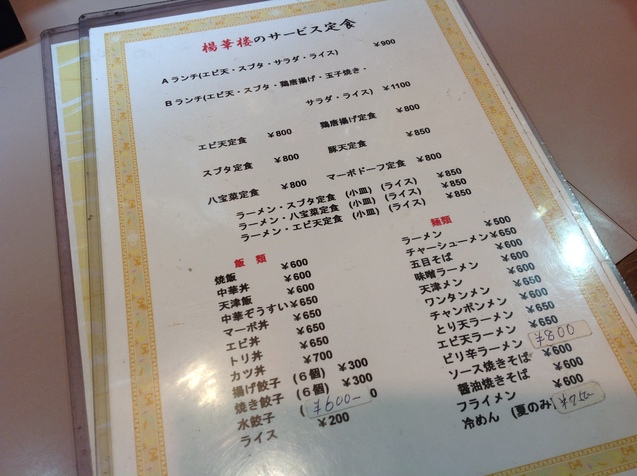 楊華楼のサービス定食
Aランチ(エビ天・スブタ・サラダ・ライス) ¥900
Bランチ(エビ天・スブタ・鶏唐揚げ・玉子焼き・
サラダ・ライス) ¥1100
エビ天定食 ¥800 鶏唐揚げ定食 ¥800
スブタ定食 ¥800 豚天定食 ¥850
八宝菜定食 ¥800 マーボドーフ定食 ¥800
ラーメン・スブタ定食 (小皿) (ライス) ¥850
ラーメン・八宝菜定食 (小皿) (ライス) ¥850
ラーメン・エビ天定食 (小皿) (ライス) ¥850
飯類
焼飯 ¥600
中華丼 ¥600
天津飯 ¥600
中華ぞうすい ¥650
マーボ丼 ¥650
エビ丼 ¥650
トリ丼 ¥650
カツ丼 ¥700
揚げ餃子 (6個) ¥300
焼き餃子 (6個) ¥300
水餃子 ( ¥600- 0
ライス ¥200
麺類
ラーメン ¥500
チャーシューメン ¥650
五目そば ¥600
味噌ラーメン ¥600
天津メン ¥600
ワンタンメン ¥600
チャンポンメン ¥600
とり天ラーメン ¥650
エビ天ラーメン ¥650
ピリ辛ラーメン ¥800
ソース焼きそば ¥600
醤油焼きそば ¥600
フライメン ¥600
冷めん (夏のみ) ¥750